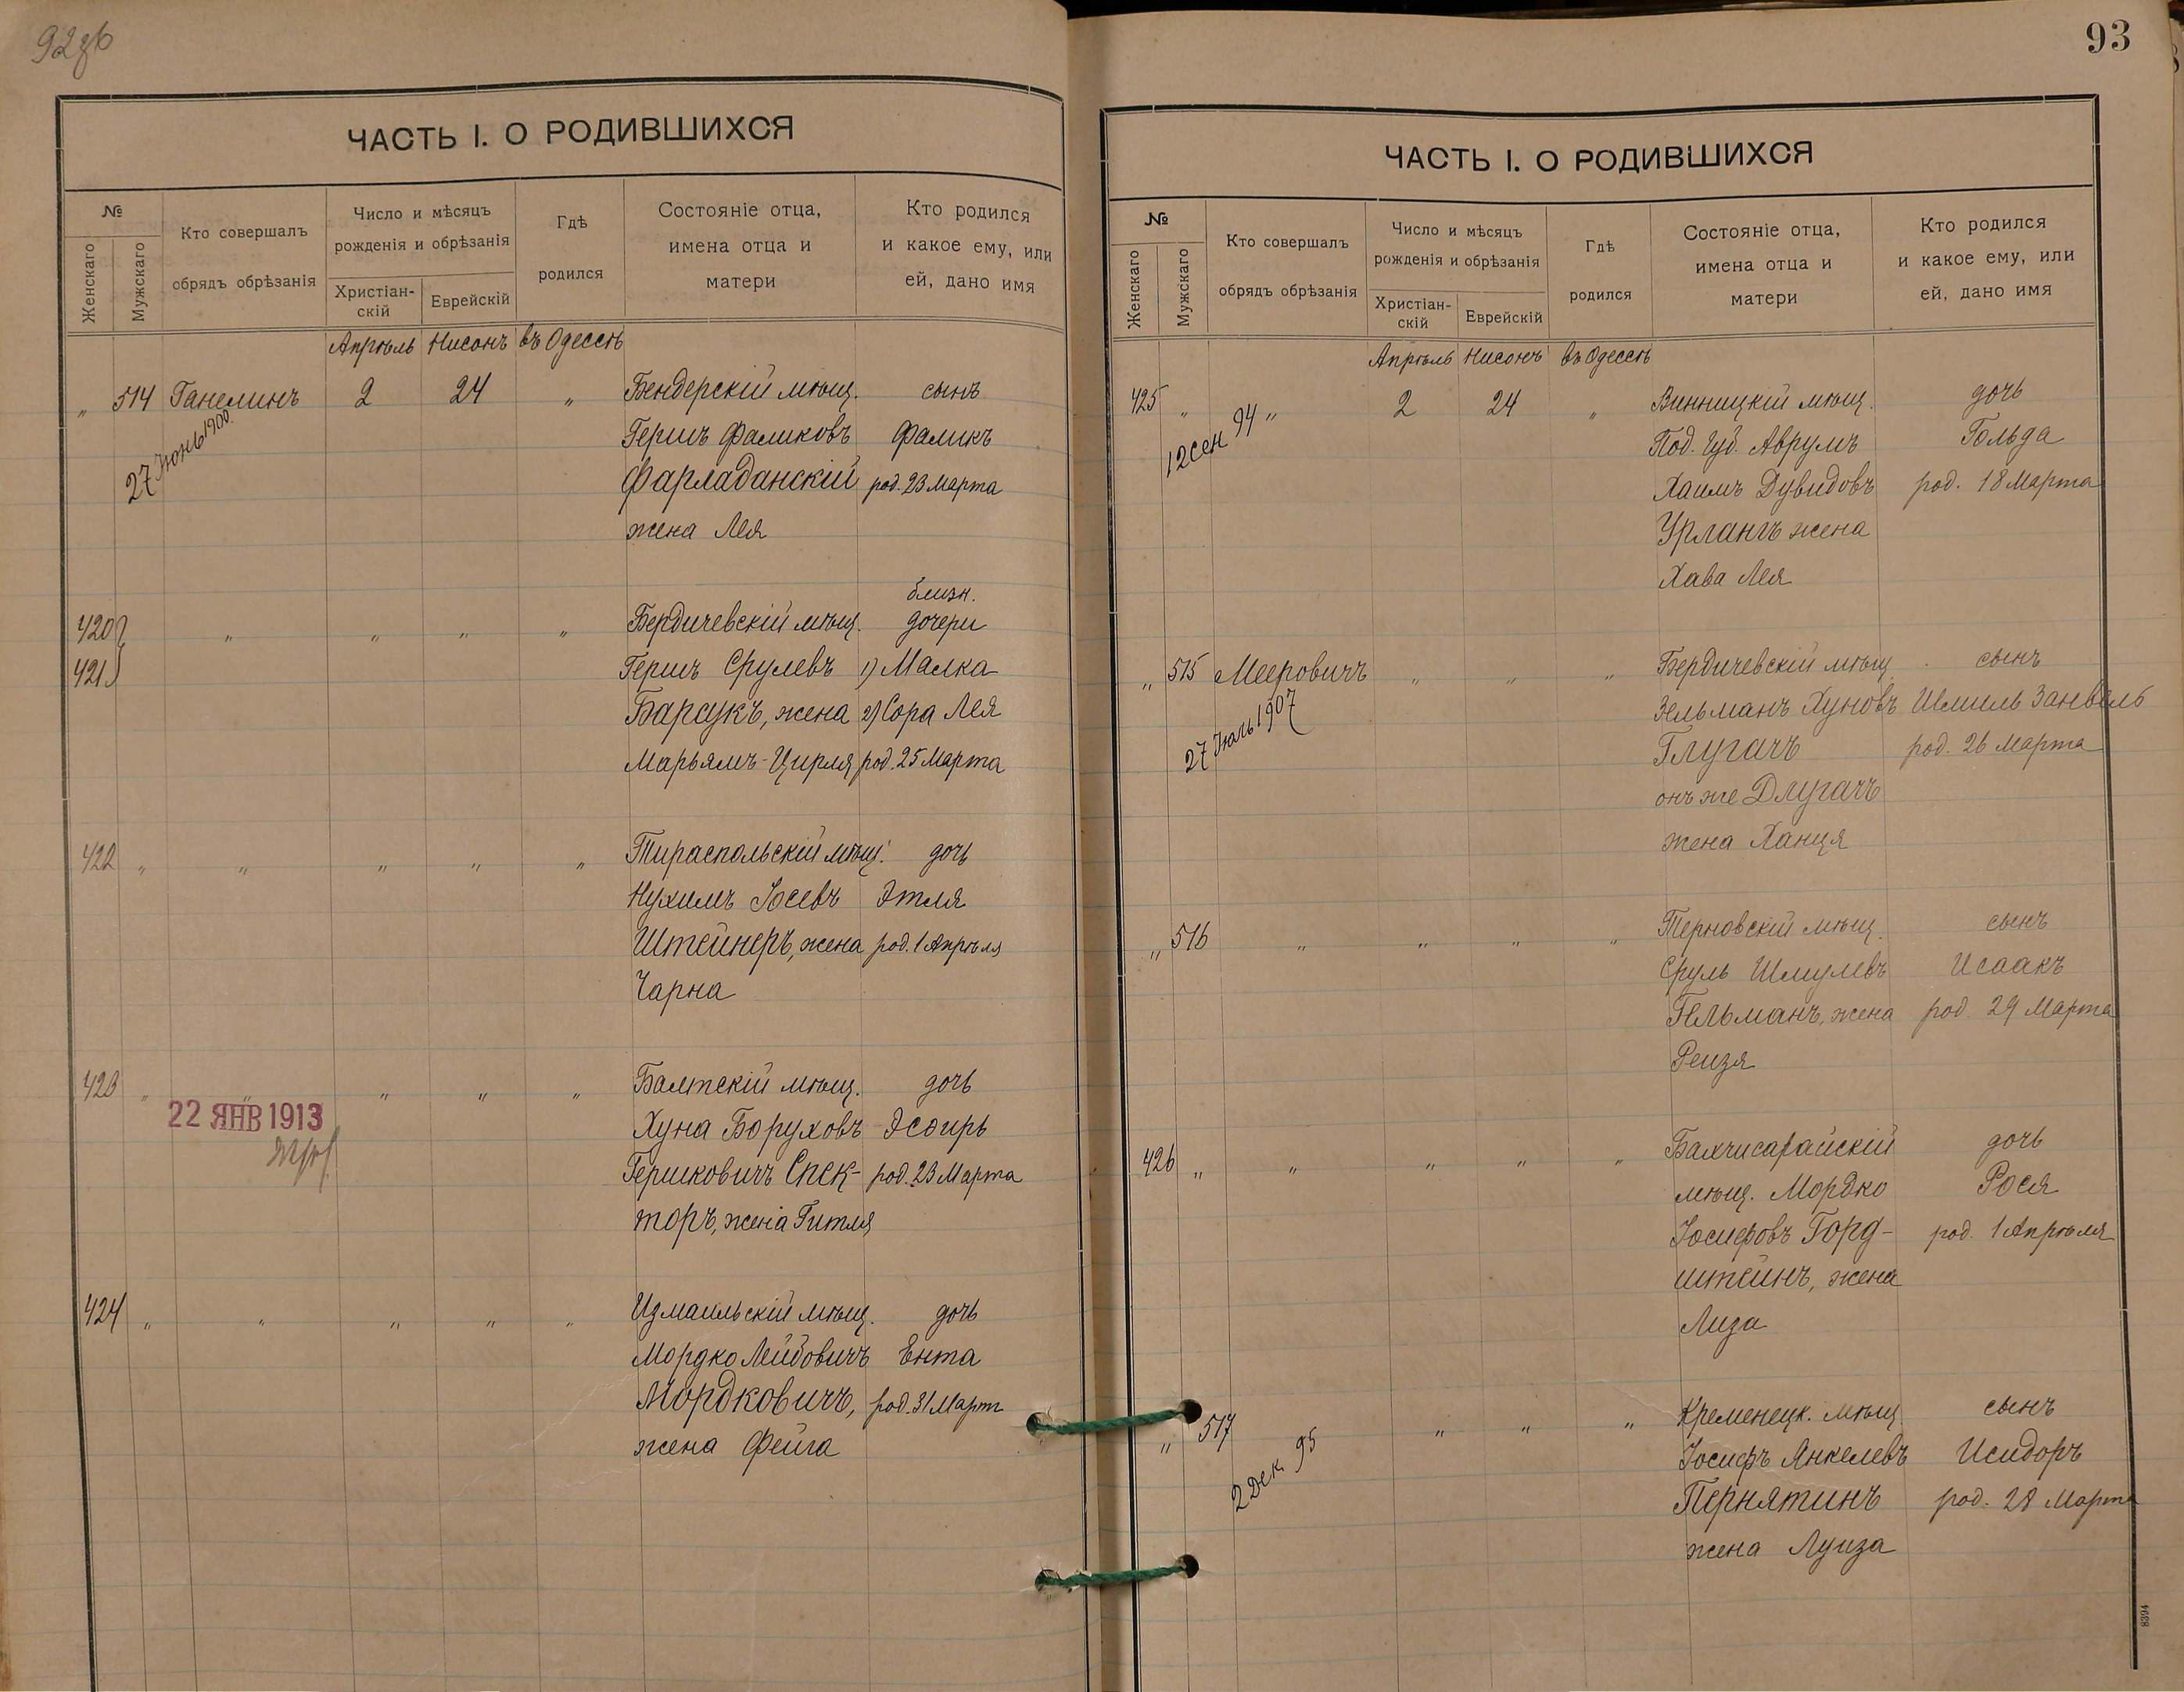 92зв
ЧАСТЬ I. О РОДИВШИХСЯ
№
Женскаго
Мужскаго
Кто совершалъ
обрядъ обрѣзанія
Число и мѣсяцъ
рожденія и обрѣзанія
Христіан-
скій
Еврейскій
Гдѣ
родился
Состояніе отца,
имена отца и
матери
Кто родился
и какое ему, или
ей, дано имя
Апрѣль Нисонъ въ Одессѣ
" 514 Ганелинъ 2 24 " Бендерскій мѣщ. сынъ
27 Іюнь 1900.
Гершъ Фаликовъ Фаликъ
Фарладанскій род. 23 Марта
жена Лея
близн.
420 " " " " Бердичевскій мѣщ. дочери
421 Гершъ Срулевъ 1) Малка
Барсукъ, жена 2) Сора Лея
Марьямъ-Цирля род. 25 Марта
422 " " " " " Тираспольскій мѣщ. дочь
Нухимъ Іосевъ Этля
Штейнеръ, жена род. 1 Апрѣля
Чарна
423 " " " " " Балтскій мѣщ. дочь
22 ЯНВ 1913
Хуна Боруховъ Эсѳирь
Гершковичъ Спек- род. 23 Марта
торъ, жена Гитля
424 " " " " " Измаильскій мѣщ. дочь
Мордко Лейбовичъ Ента
Мордковичъ, род. 31 Март
жена Фейга
93
ЧАСТЬ I. О РОДИВШИХСЯ
№
Женскаго
Мужскаго
Кто совершалъ
обрядъ обрѣзанія
Число и мѣсяцъ
рожденія и обрѣзанія
Христіан-
скій
Еврейскій
Гдѣ
родился
Состояніе отца,
имена отца и
матери
Кто родился
и какое ему, или
ей, дано имя
Апрѣль Нисонъ въ Одессѣ
425 " " 2 24 " Винницкій мѣщ. дочь
12 сен 94
Под. Губ. Аврумъ Гольда
Хаимъ Дувидовъ род. 18 Марта
Урлангъ жена
Хава Лея
" 515 Мееровичъ " " " Бердичевскій мѣщ. сынъ
27 Іюль 1907
Зельманъ Хуновъ Шмиль Занвель
Глугачъ род. 26 Марта
онъ же Длугачъ
жена Ханця
" 516 " " " " Терновскій мѣщ. сынъ
Сруль Шмулевъ Исаакъ
Гельманъ, жена род 29 Марта
Рейзя
426 " " " " " Бахчисарайскій дочь
мѣщ. Мордко Рося
Іосифовъ Горд- род. 1 Апрѣля
штейнъ, жена
Лиза
" 517 " " " Кременецк. мѣщ. сынъ
2 дек 95
Іосифъ Янкелевъ Исидоръ
Пернятинъ род. 28 Марта
жена Луиза
8394